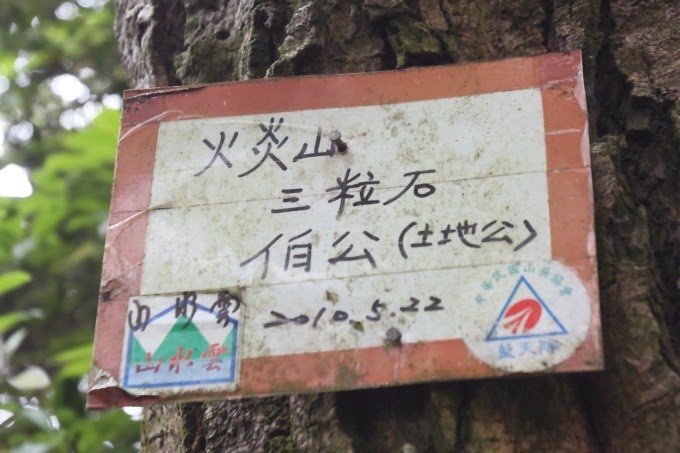 火炎山
三粒石
伯公(土地公)
2010.5.22
山水雲
山水雲
藍天隊